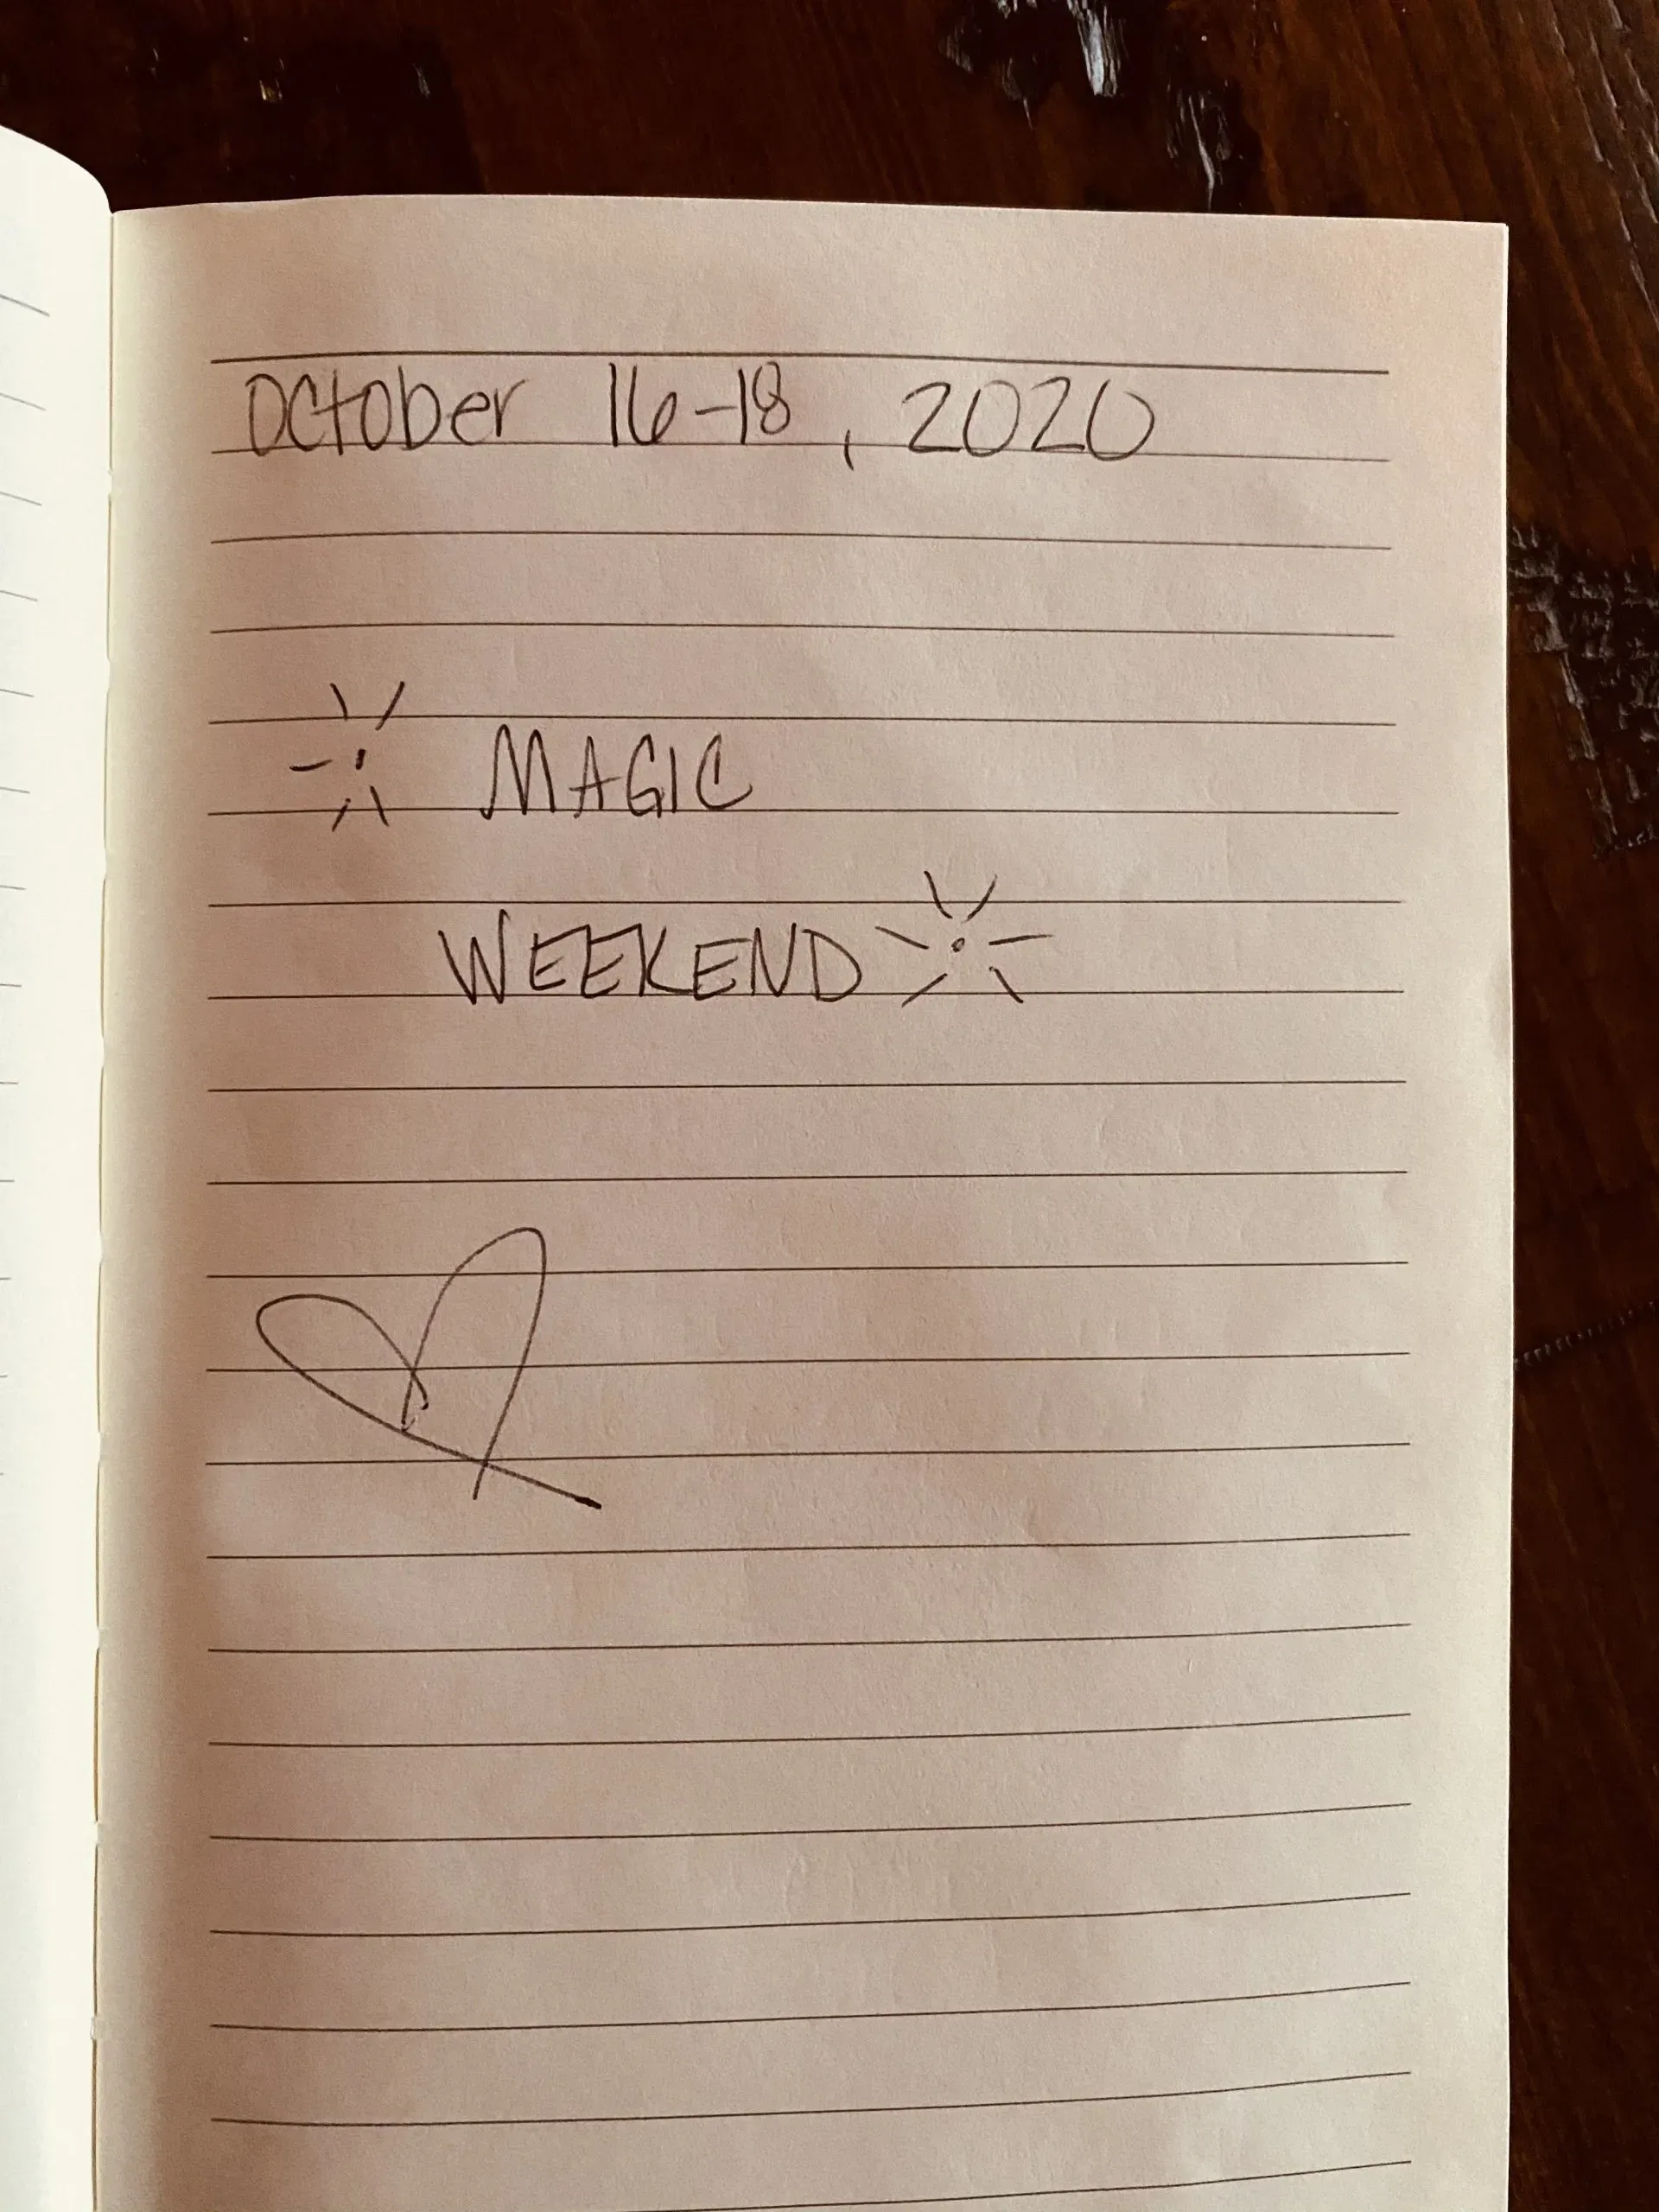 October 16-18, 2020
MAGIC
WEEKEND